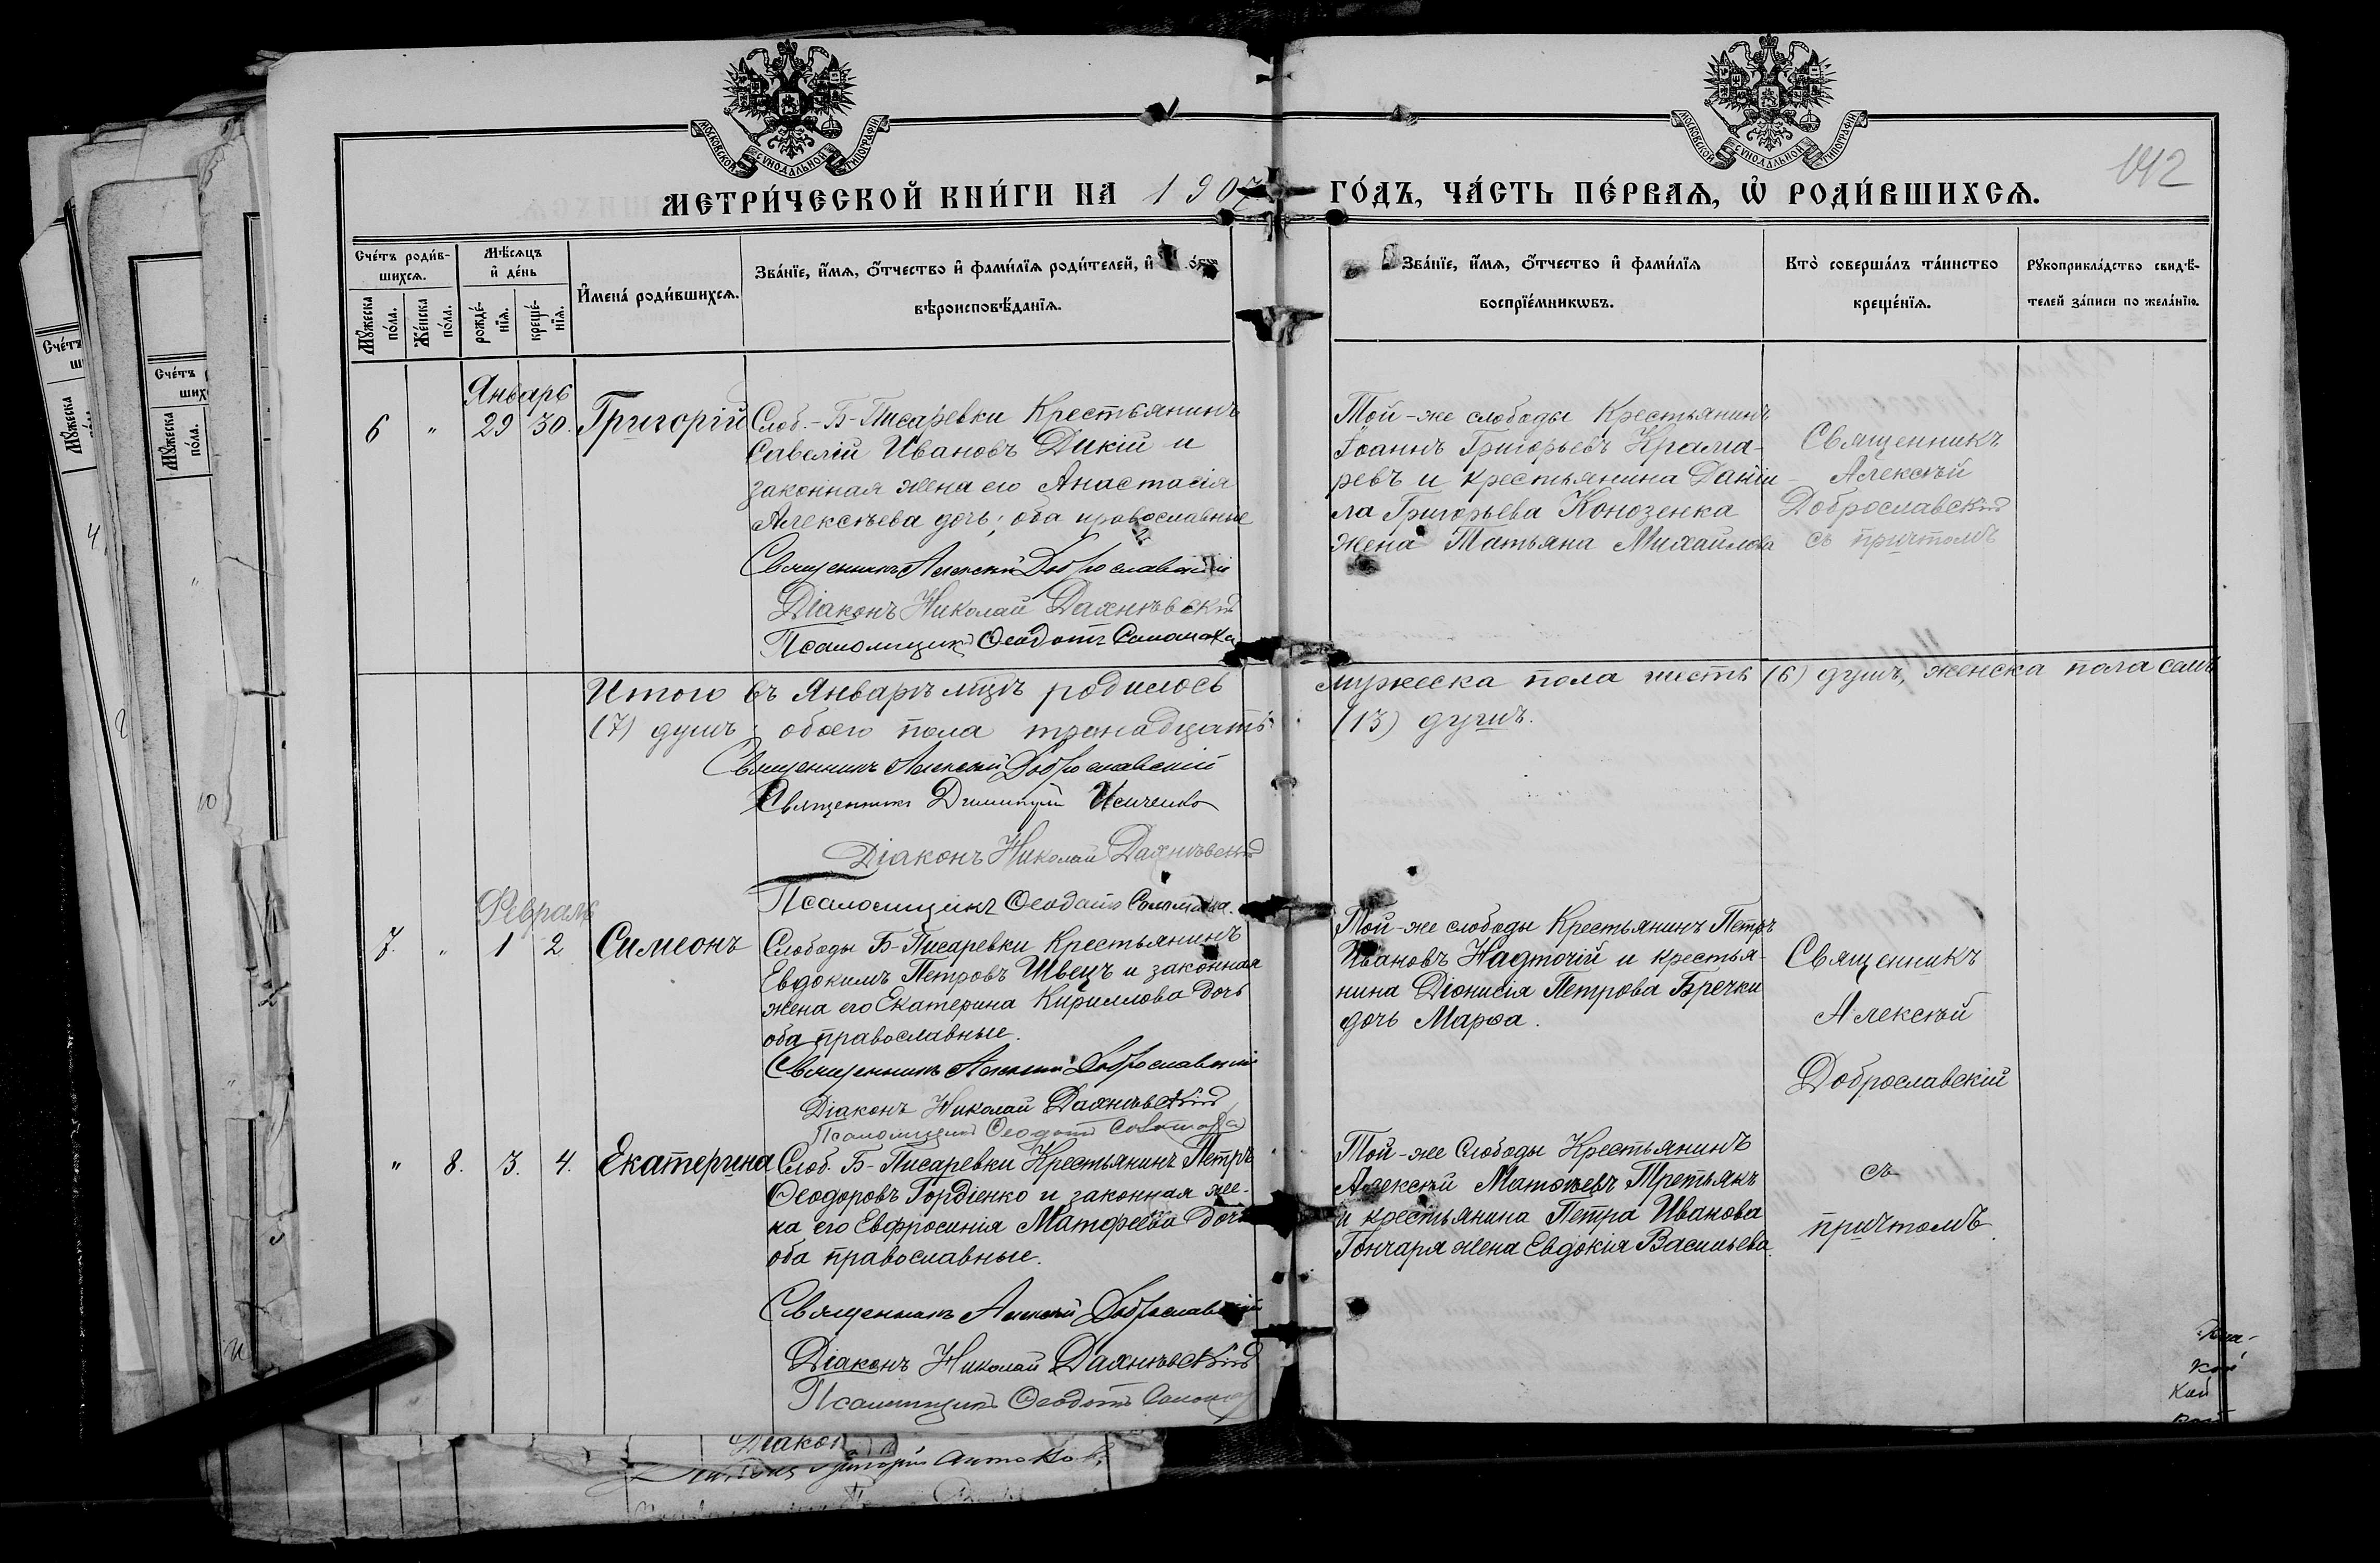 МОСКОВСКОЙ СУНОДАЛЬНОЙ ТИПОГРАФІИ
МОСКОВСКОЙ СУНОДАЛЬНОЙ ТИПОГРАФІИ
142
МЕТРИ́ЧЕСКОЙ КНИ́ГИ НА 1907 ГО́ДЪ, ЧА́СТЬ ПЕ́РВАѦ, Ѡ РОДИ́ВШИХСѦ.
Сче́тъ роди́в-
шихсѧ.
Мꙋжеска по́ла.
Же́нска по́ла.
Мѣ́сѧцъ
и де́нь
рожде́-
нїѧ.
креще́-
нїѧ.
И҆мена́ роди́вшихсѧ.
Зва́нїе, и҆́мѧ, ѻ҆́тчество и҆ фами́лїѧ роди́телей, и҆
вѣроисповѣ́данїѧ.
Зва́нїе, и҆́мѧ, ѻ҆́тчество и҆ фами́лїѧ
воспрїе́мникѡвъ.
Кто̀ соверша́лъ та́инство
креще́нїѧ.
Рꙋкоприкла́дство свидѣ́-
телей за́писи по жела́нїю.
Январь
6 " 29 30. Григорій
Слоб.-Б-Писаревки Крестьянинъ
Савелій Ивановъ Дикій и
законная жена его Анастасія
Алексѣева дочь; оба православные
Священникъ Алексѣй Доброславскій
Діаконъ Николай Дахнѣвскій
Псаломщикъ Ѳеодотъ Соломаха
Той-же слободы Крестьянинъ
Іоаннъ Григорьевъ Крама-
ревъ и крестьянина Даніи-
ла Григорьева Конозенка
жена Татьяна Михайлова
Священникъ
Алексѣй
Доброславскій
съ причтомъ
Итого въ Январѣ мцѣ родилось мужеска пола шесть (6) душъ, женска пола семь
(7) душъ обоего пола тринадцать (13) душъ.
Священникъ Алексѣй Доброславскій
Священникъ Димитрій
Діаконъ Николай Дахнѣвскій
Псаломщикъ Ѳеодотъ Соломаха.
Февраль
7. " 1 2 Симеонъ
Слободы Б-Писаревки Крестьянинъ
Евдокимъ Петровъ Швецъ и законная
жена его Екатерина Кириллова дочь
оба православные.
Священникъ Алексѣй Доброславскій
Діаконъ Николай Дахнѣвскій
Псаломщикъ Ѳеодотъ Соломаха
Той-же слободы Крестьянинъ Петръ
Ивановъ Надточій и крестья-
нина Діонисія Петрова Бречки
дочь Марѳа.
Священникъ
Алексѣй
Доброславскій
съ
причтомъ.
" 8. 3. 4. Екатерина
Слоб. Б-Писаревки Крестьянинъ Петръ
Ѳеодоровъ Гордіенко и законная же-
на его Евфросинія Матфеева дочь
оба православные.
Священникъ Алексѣй Доброславскій
Діаконъ Николай Дахнѣвскій
Псаломщикъ Ѳеодотъ Соломаха
Той-же Слободы Крестьянинъ
Алексѣй Матѳѣевъ Третьякъ
и крестьянина Петра Иванова
Гончаря жена Евдокія Васильева.